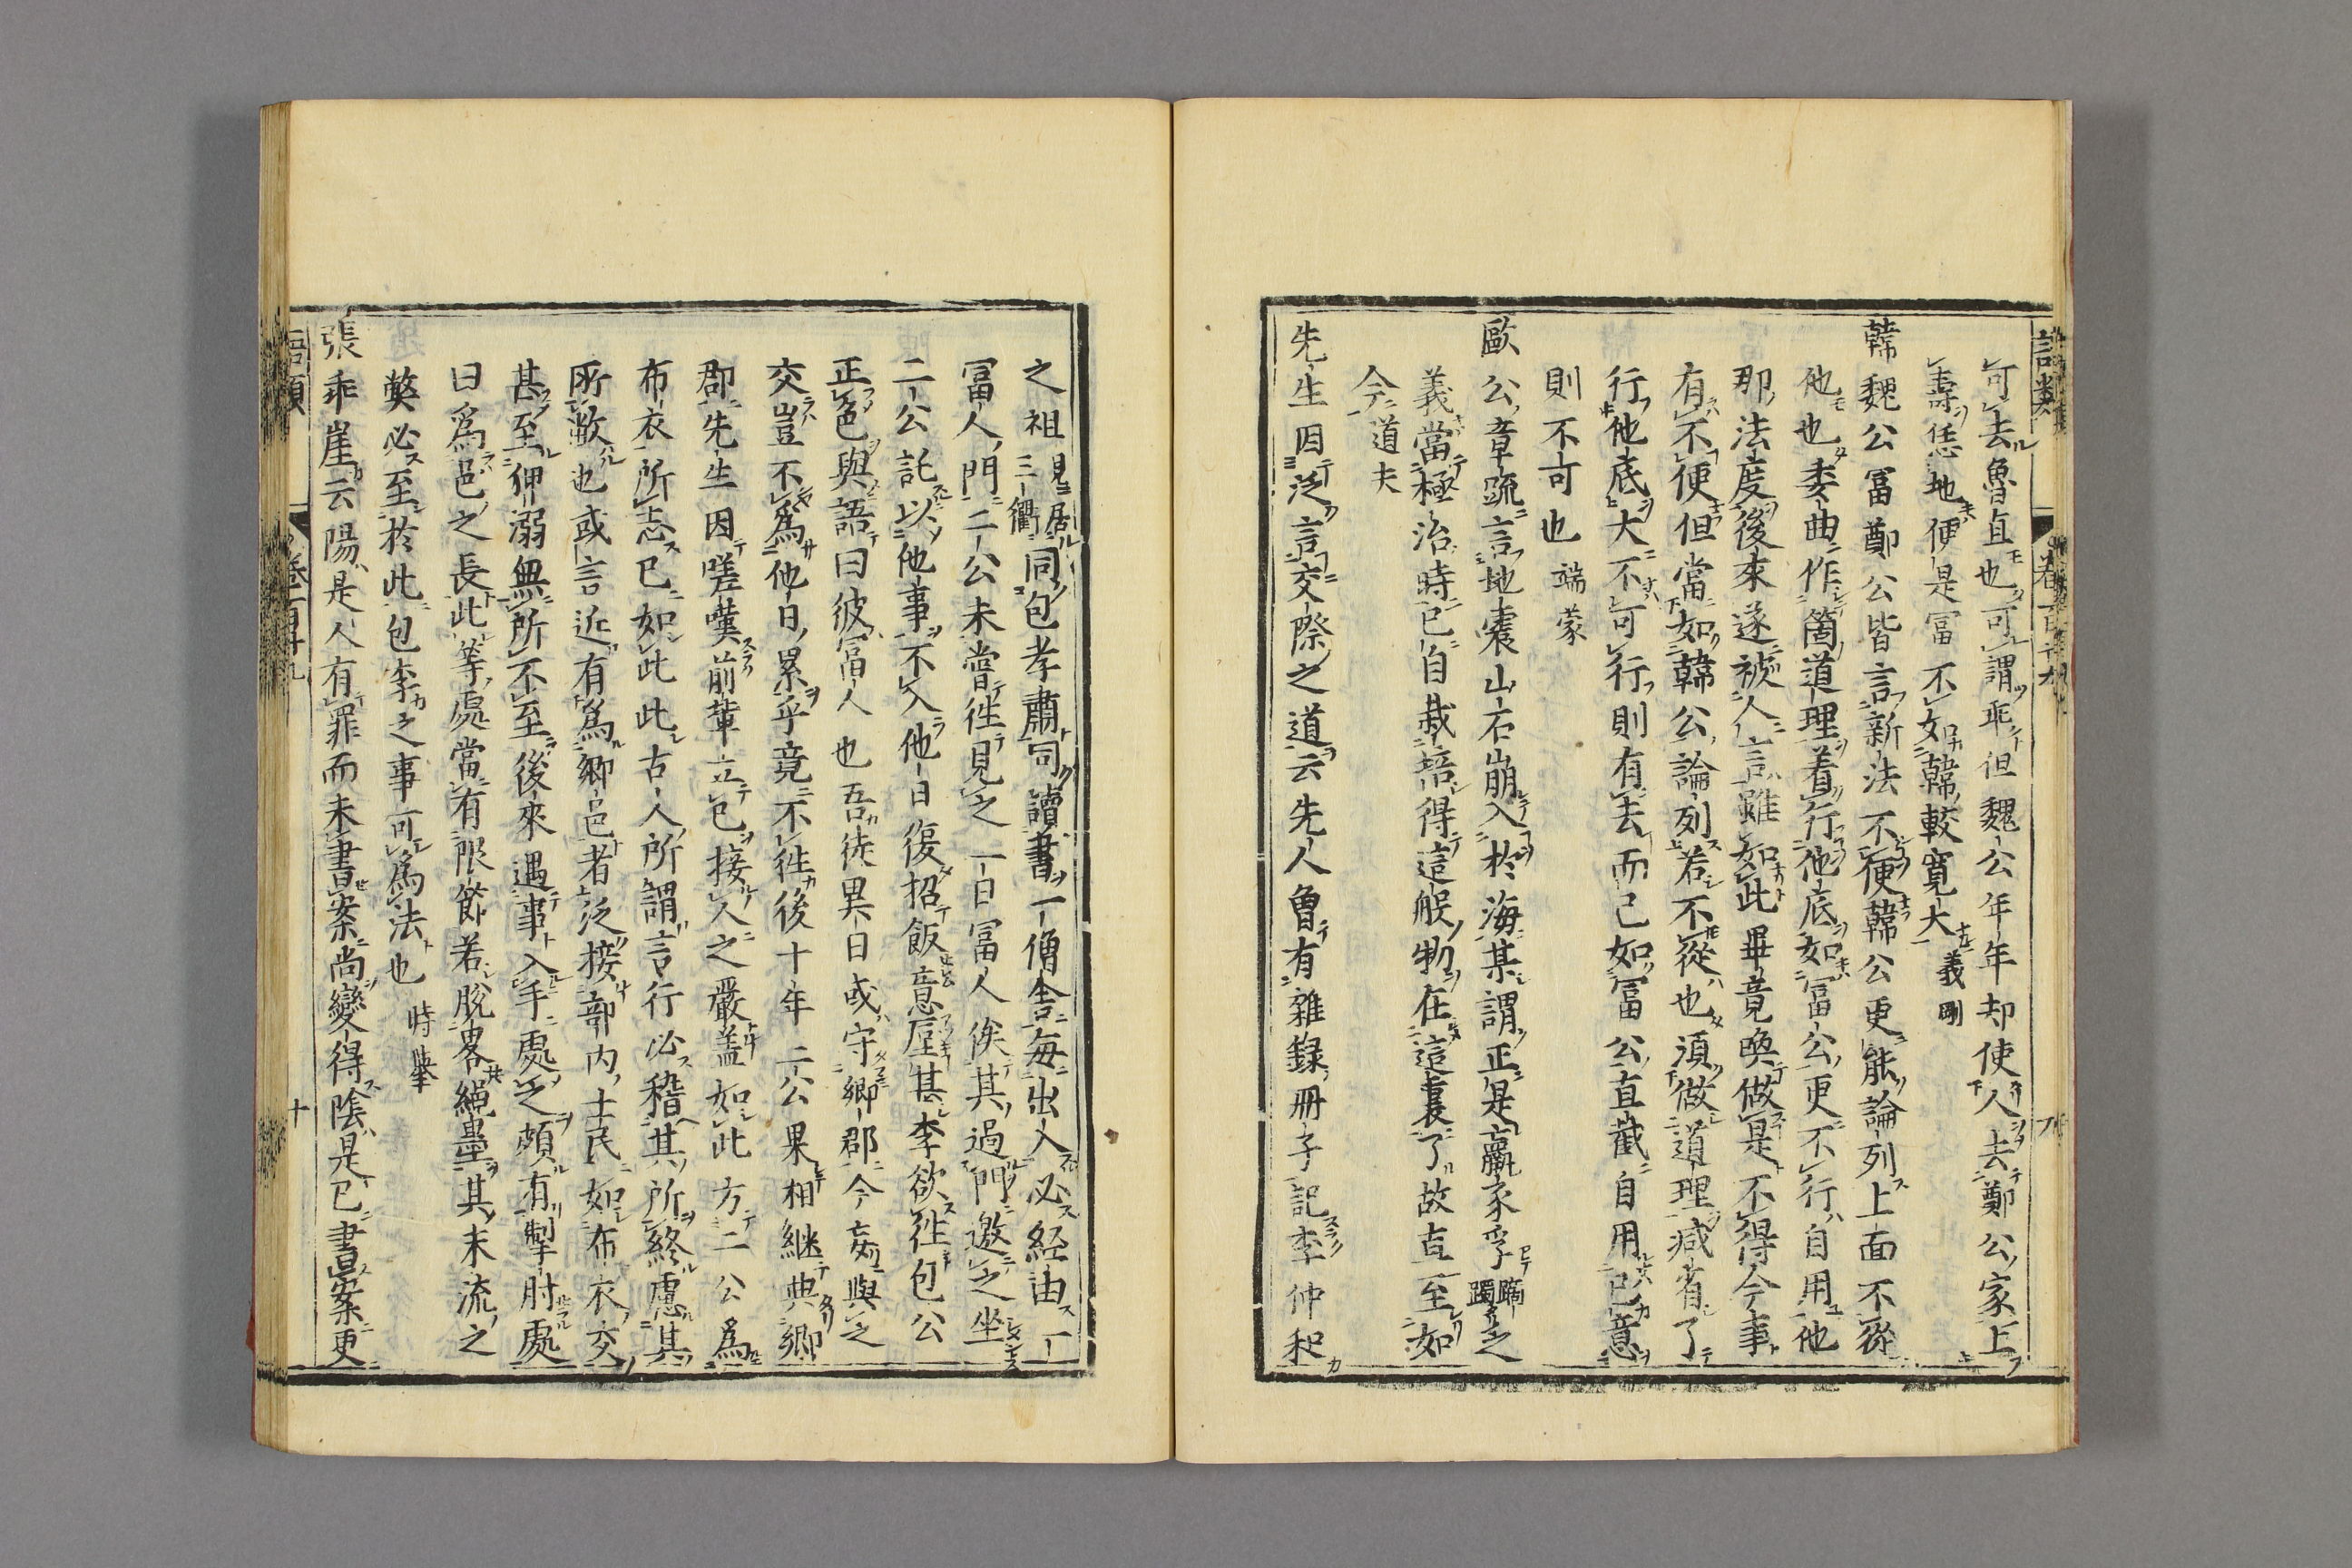 語類　卷百廿九　九
可去魯直也可謂乖但魏公年年却使人去鄭公家上
壽恁地便是冨不如韓較寛大義剛
韓魏公冨鄭公皆言新法不便韓公更能論列上面不從
他也委曲作箇道理着行他底如冨公更不行自用他
那法度後來遂被人言雖如此畢竟喚做是不得今事
有不便但當如韓公論列若不從也湏做道理减省了
行他底大不可行則有去而已如冨公直截自用已意
則不可也端蒙
歐公章疏言地震山石崩入於海某謂正是羸豕孚蹢躅之
義當極治時已自栽培得這般物在這裏了故直至如
今道夫
先生因泛言交際之道云先人曾有雜錄冊子記李仲和
之祖見居三衢同包孝肅同讀書一僧舎每出入必經由一
冨人門二公未嘗徃見之一日冨人俟其過門邀之坐
二公託以他事不入他日復招飯意厪甚李欲徃包公
正色與語曰彼冨人也吾徒異日或守郷郡今妄與之
交豈不爲他日累乎竟不徃後十年二公果相継典郷
郡先生因嗟嘆前輩立已接人之嚴盖如此方二公爲
布衣所志已如此此古人所謂言行必稽其所終慮其
所敝也或言近有爲郷邑者泛接部内士民如布衣交
甚至狎溺無所不至後來遇事入手處之頗有掣肘處
曰爲邑之長此等處當有限節若脫畧繩墨其末流之
弊必至於此包李之事可爲法也時舉
張乖崖云陽是人有罪而未書案尚變得陰是已書案更
語類　卷一百廿九　十